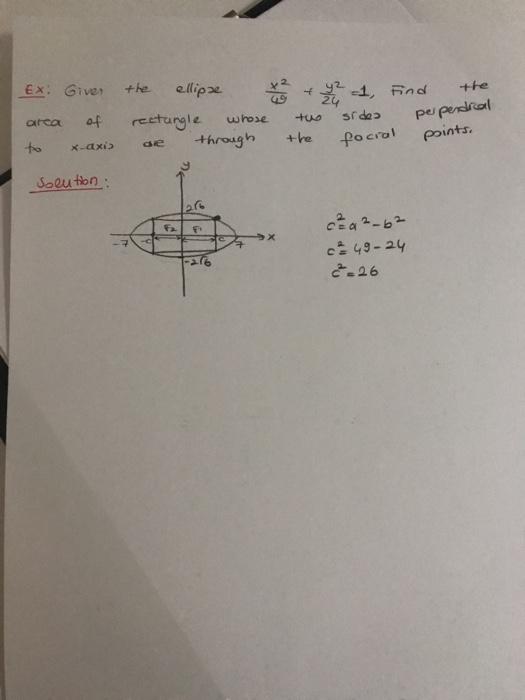 Ex: Given the ellipse x²/49 + y²/24 =1, Find the
area of rectangle whose two sides perpendical
to x-axis are through the focral points.
Solution:
y
2√6
F2 F1
-7 -c c 7 x
-2√6
c²=a²-b²
c²=49-24
c²=26